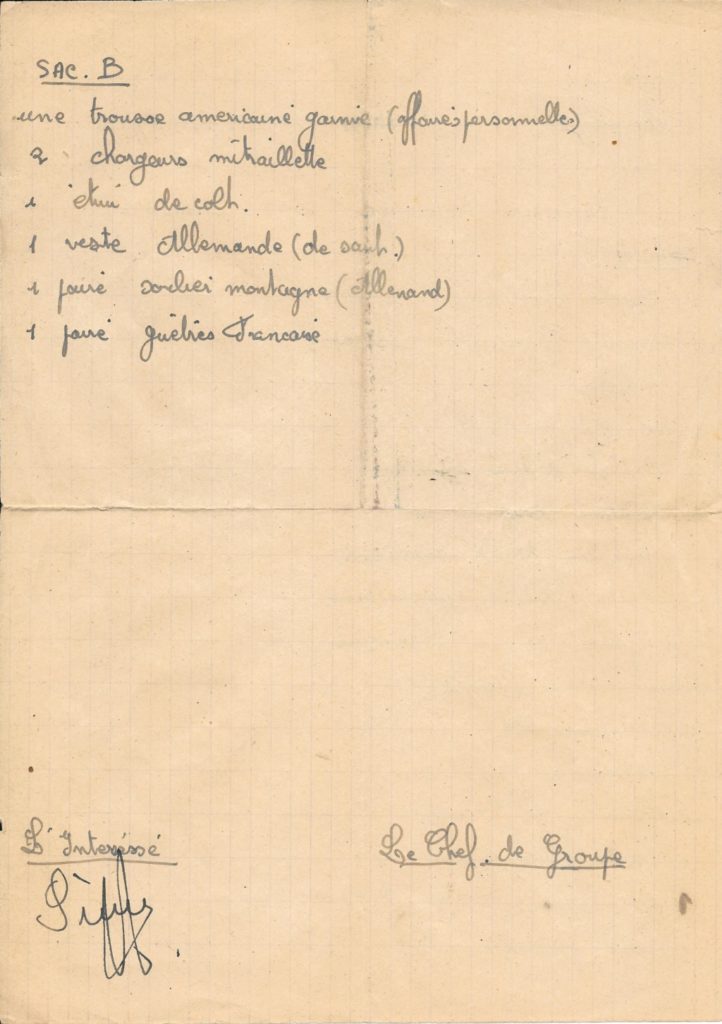 SAC. B
une trousse americaine garnie (affaires personnelles)
2 chargeurs mitraillette
1 étui de colt.
1 veste Allemande (de saut.)
1 paire soulier montagne (Allemand)
1 paire guêtres Francaise
L'Interéssé
Le Chef. de Groupe